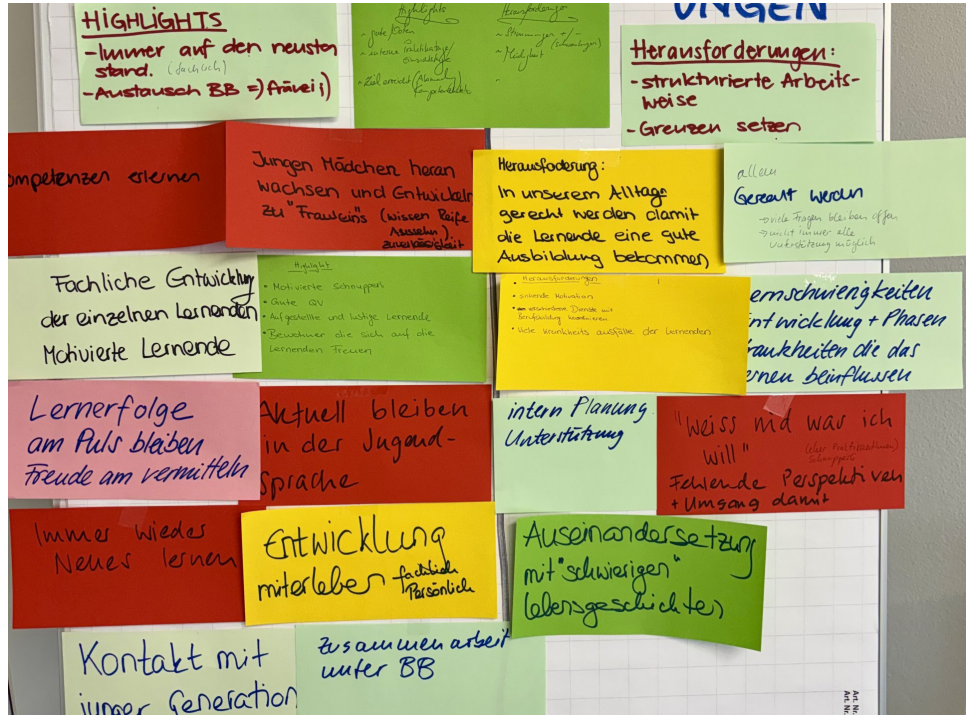 UNGEN
HIGHLIGHTS
-Immer auf den neusten
stand. (fachlich)
-Austausch BB =)
Highlights
~ gute
~ interne
~ Ziel erreicht
Herausforderungen
~ Stimmungen +/-
~ Müdigkeit
~
Herausforderungen:
-strukturierte Arbeits-
weise
-Grenzen setzen
ompetenzen erlernen
Jungen Mädchen heran
wachsen und Entwickeln
zu "Frauleins" (wissen Reife
Aussehn)
zuverlässigkeit
Herausfoderung:
In unserem Alltag
gerecht werden damit
die Lernende eine gute
Ausbildung bekommen
allem
Gerecht werden
→ viele Fragen bleiben offen
→ nicht immer alle
Unterstützung möglich
Fachliche Entwicklung
der einzelnen Lernenden
Motivierte Lernende
Highlight
• Motivierte Schnuppern
• Gute QV
• Aufgestellte und lustige Lernende
• Bewohner die sich auf die
Lernenden Freuen
Herausforderungen
• sinkende Motivation
• Dienste mit
Berufsbildung
• Viele Krankheits ausfälle der Lernenden
ernschwierigkeiten
ntwicklung + Phasen
rankheiten die das
ernen beinflussen
Lernerfolge
am Puls bleiben
Freude am vermitteln
Aktuell bleiben
in der Jugend-
sprache
intern Planung
Unterstützung
"Weiss nid was ich
will"
Fehlende Perspektiven
+ Umgang damit
Immer wieder
Neues lernen
Entwicklung
miterleben fachlich
Persönlich
Auseinandersetzung
mit "schwierigen"
lebensgeschichten
Kontakt mit
junger Generation
Zusammenarbeit
unter BB
Art. Nr.
Art. Nr.